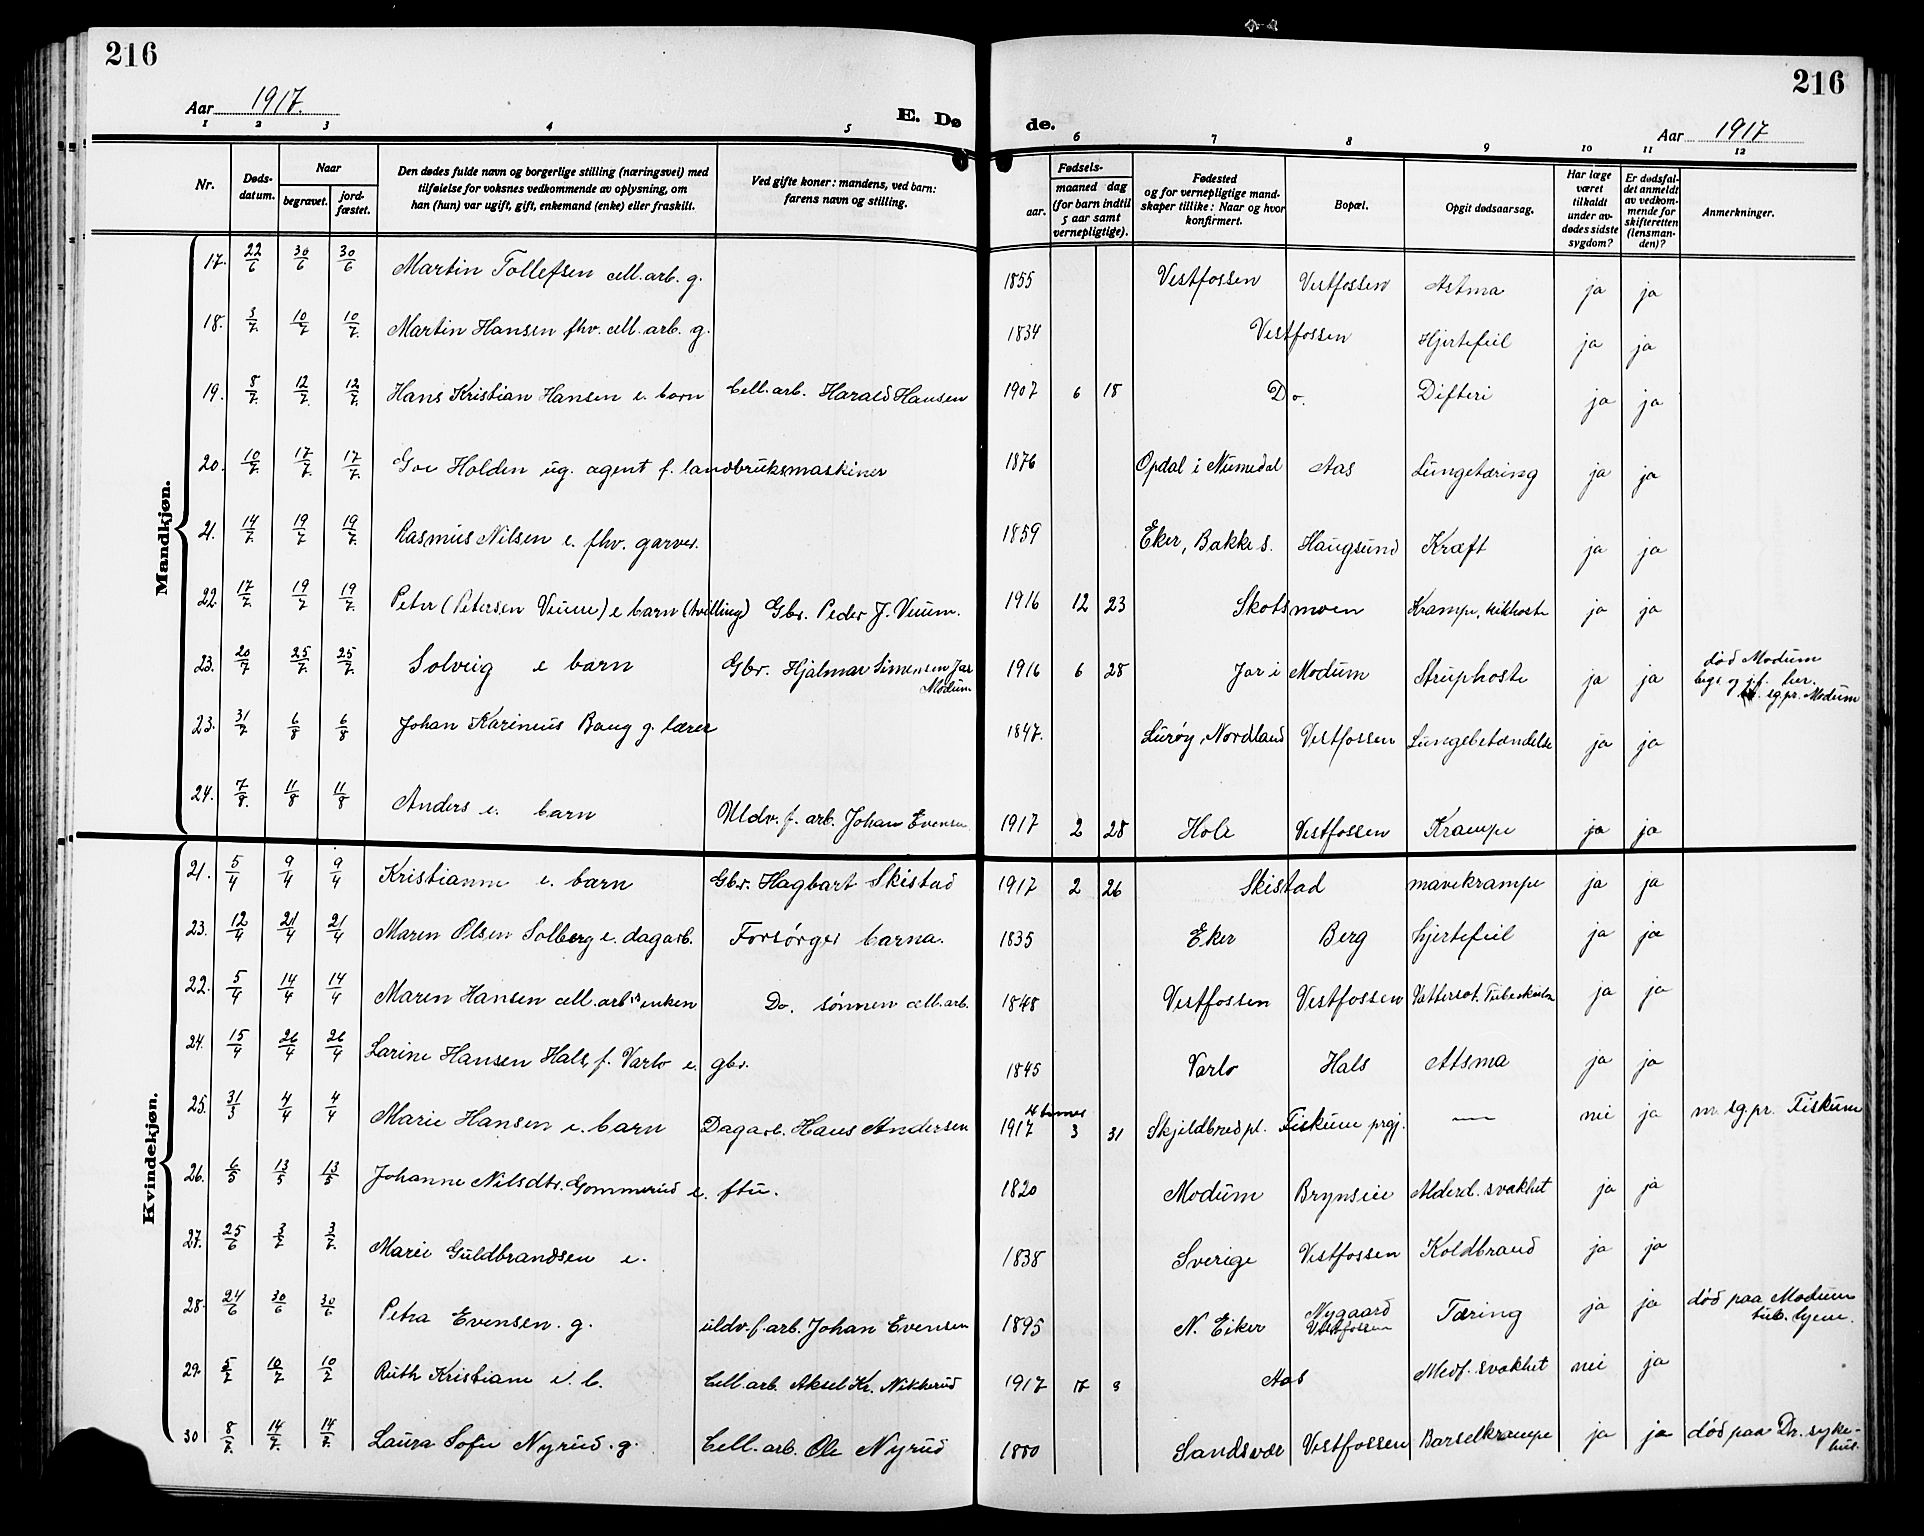 216
216
Aar 1917.
E. Dø
de.
Aar 1917
1 2 3 4 5 6 7 8 9 10 11 12
Nr.
Døds-datum.
Naar
begravet.
jord-fæstet.
Den dødes fulde navn og borgerlige stilling (næringsvei) med
tilføielse for voksnes vedkommende av oplysning, om
han (hun) var ugift, gift, enkemand (enke) eller fraskilt.
Ved gifte koner: mandens, ved barn:
farens navn og stilling.
Fødsels-
aar.
maaned dag
(for barn indtil
5 aar samt
vernepligtige).
Fødested
og for vernepligtige mand-
skaper tillike: Naar og hvor
konfirmert.
Bopæl.
Opgit dødsaarsag.
Har læge
været
tilkaldt
under av-
dødes sidste
sygdom?
Er dødsfal-
det anmeldt
av vedkom-
mende for
skifteretten
(lensman-
den)?
Anmerkninger.
Mandkjøn.
17. 22/6 30/6 30/6 Martin Tollefsen cell. arb. g. 1855 Vestfossen Vestfossen Astma ja ja
18. 3/7. 10/7 10/7. Martin Hansen fhv. cell. arb. g. 1834 Vestfossen Hjertefeil ja ja
19. 8/7. 12/7 12/7. Hans Kristian Hansen e. barn Cell. arb. Harald Hansen 1907 6 18 Do. Difteri ja ja
20. 10/7. 17/7. 17/7. Goe Holden ug. agent f. landbruksmaskiner 1876 Opdal i Numedal Aas Lungetæring ja ja
21. 14/7. 19/7. 19/7. Rasmus Nilsen e. fhv. garver. 1859 Eker, Bakke s. Haugsund Kræft ja ja
22 17/7. 19/7 19/7. Peter (Petersen Veum) e barn (tvilling) Gbr. Peder J. Veum. 1916 12 23 Skotsmoen Krampe, kikhoste ja ja
23. 20/7 25/7. 25/7. Solveig e barn Gbr. Hjalmar Simensen Jar Modum 1916 6 28 Jar i Modum Struphoste ja ja død Modum
begr og jf. her.
sg.pr. Modum
23. 31/7 6/8 6/8 Johan Karinius Baug g. lærer 1847. Lurøy, Nordland Vestfossen Lungebetændelse ja ja
24. 7/8. 11/8 11/8 Anders e. barn Uldv. f. arb. Johan Evensen 1917 2 28 Hole Vestfossen Krampe ja ja
Kvindekjøn.
21. 5/4 9/4 9/4 Kristianne e. barn Gbr. Hagbart Skistad 1917 2 26 Skistad mavekrampe ja ja
23. 12/4 21/4 21/4 Maren Olsen Solberg e. dagarb. Forsørges barna. 1835 Eker Berg hjertefeil ja ja
22. 5/4 14/4 14/4 Maren Hansen cell. arb.s enken Do. sønnen cell. arb. 1848 Vestfossen Vestfossen Vattersot. ja ja
24. 15/4 26/4 26/4 Larine Hansen Hals, f. Varlo e. gbr. 1845 Varlo Hals Atsma ja ja
25. 31/3 4/4 4/4 Marie Hansen e. barn Dagarb. Hans Andersen 4 timer 1917 3 31 Skjeldbred pl. Fiskum prgj. — nei ja m. sg.pr. Fiskum
26. 6/5 13/5 13/5 Johanne Nilsdtr. Gommerud e. ftu. 1820 Modum Brynseie Alderd. svakhet ja ja
27. 25/6 3/7 3/7. Marie Guldbrandsen e. 1838 Sverige Vestfossen Koldbrand ja ja
28. 24/6 30/6 30/6 Petra Evensen. g. uldv. f. arb. Johan Evensen 1895 N. Eiker Nygaard Vestfossen Tæring ja ja død paa Modum
tub. hjem.
29 5/7 10/7 10/7 Ruth Kristiane e. b. Cell. arb. Aksel Kr. Nikkerud 1917 Aas Medf. svakhet nei ja
30 8/7. 14/7. 14/7. Laura Sofie Nyrud. g. Cell. arb. Ole Nyrud 1880 Sandsvær Vestfossen Barselkrampe ja ja død paa Dr. syke-
hus.